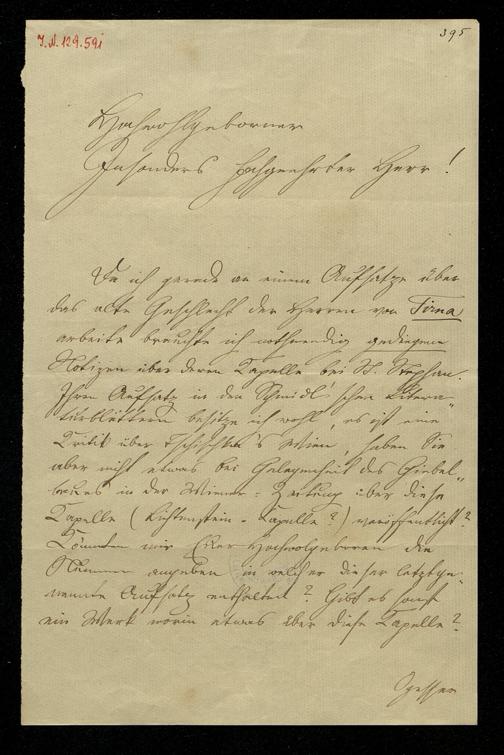 I.N. 129.591
395
Hochwohlgeborner
Insonders hochgeehrter Herr!
Da ich gerade an einem Aufsatze über
das alte Geschlecht der Herren von Tirna
arbeite brauchte ich nothwendig gediegene
Notizen über deren Capelle bei St. Stephan.
Ihren Aufsatz in den Schmidl'schen Litera-
turblättern besitze ich wohl, es ist eine
Kritik über Tschischka's Wien, haben Sie
aber nicht etwas bei Gelegenheit des Giebel-
baues in der Wiener-Zeitung über diese
Capelle (Lichtenstein-Capelle?) veröffentlicht?
Könnten mir Euer Hochwolgeboren die
Nummer angeben in welcher dieser letztge-
nannte Aufsatz enthalten? Gibt es sonst
ein Werk worin etwas über diese Capelle?